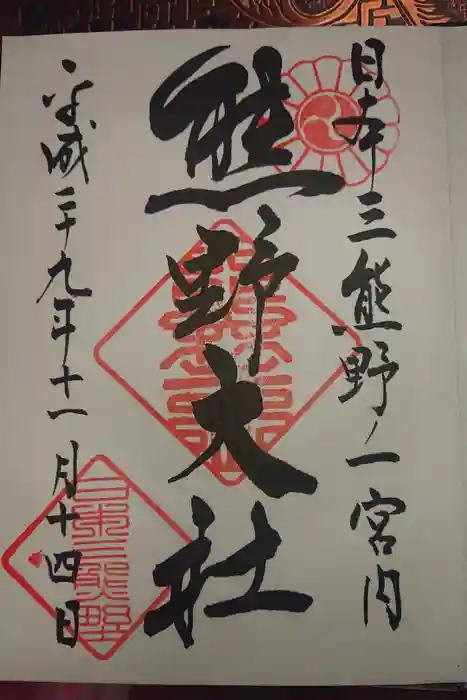 日本三熊野ノ一宮内
熊野大社
平成二十九年十一月十四日
日本三熊野